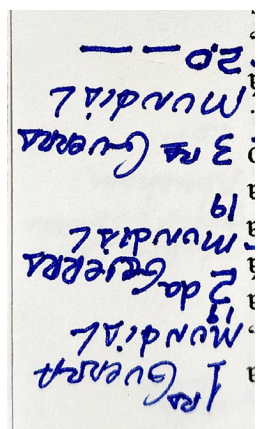 1RA GuerrA
MuNdiAL
19
2da GuerrA
MuNdiAL
19
3RA GuerrA
MuNdiAL
20 — —